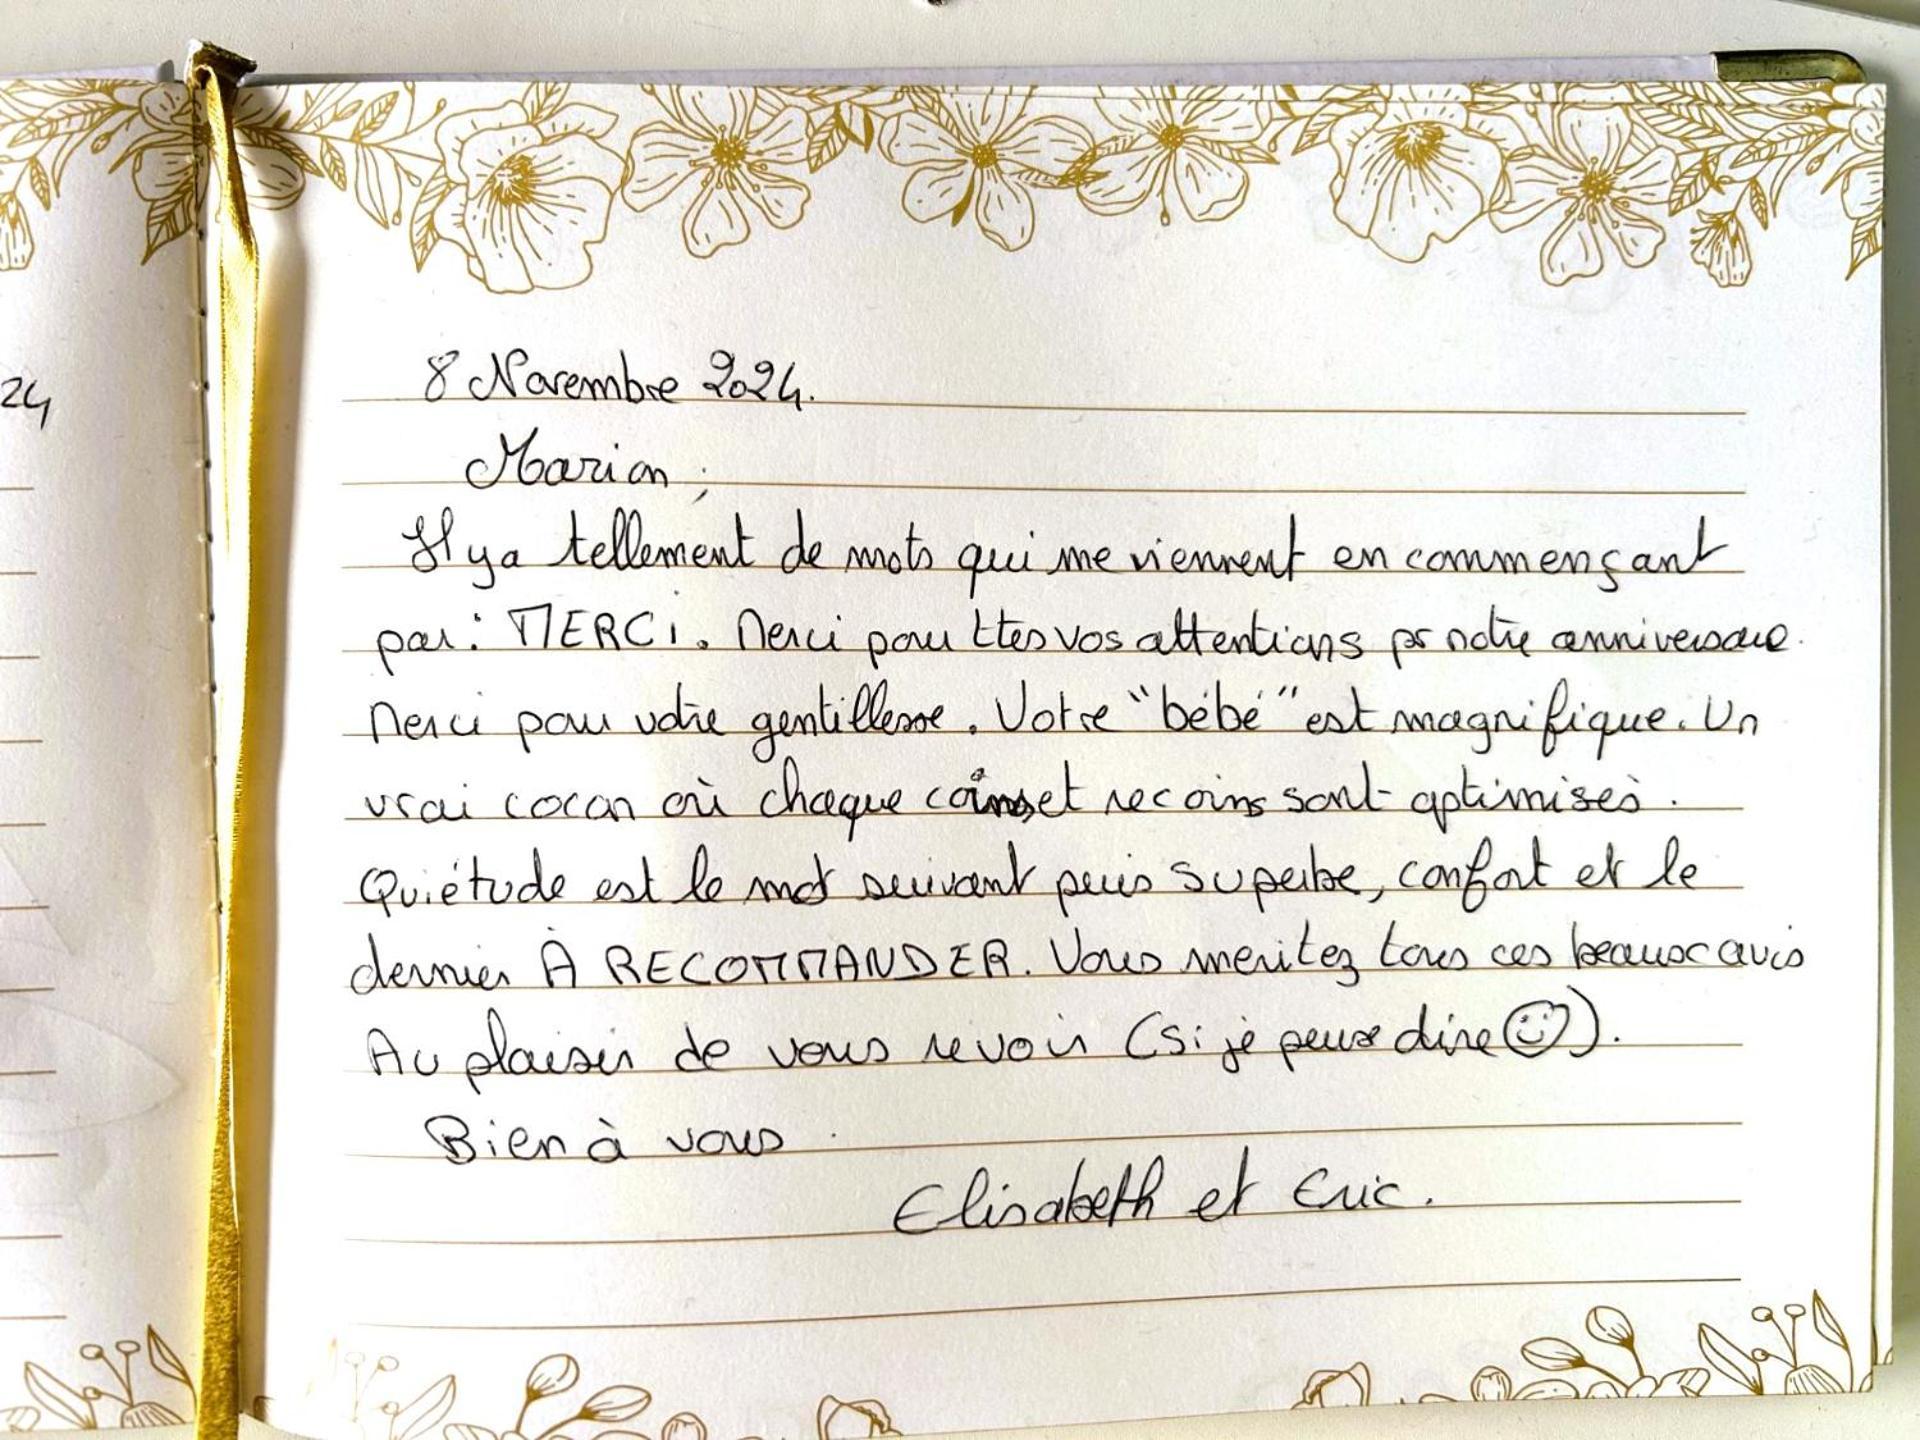 24
8 Novembre 2024.
Marion ;
Il y a tellement de mots qui me viennent en commençant
par : MERCI. Merci pour ttes vos attentions pr notre anniversaire.
Merci pour votre gentillesse. Votre "bébé" est magnifique. Un
vrai cocon où chaque coins et recoins sont optimisés.
Quiétude est le mot suivant puis superbe, confort et le
dernier À RECOMMANDER. Vous meritez tous ces beaux avis
Au plaisir de vous revoir (si je peux dire ☺).
Bien à vous.
Elisabeth et Eric.